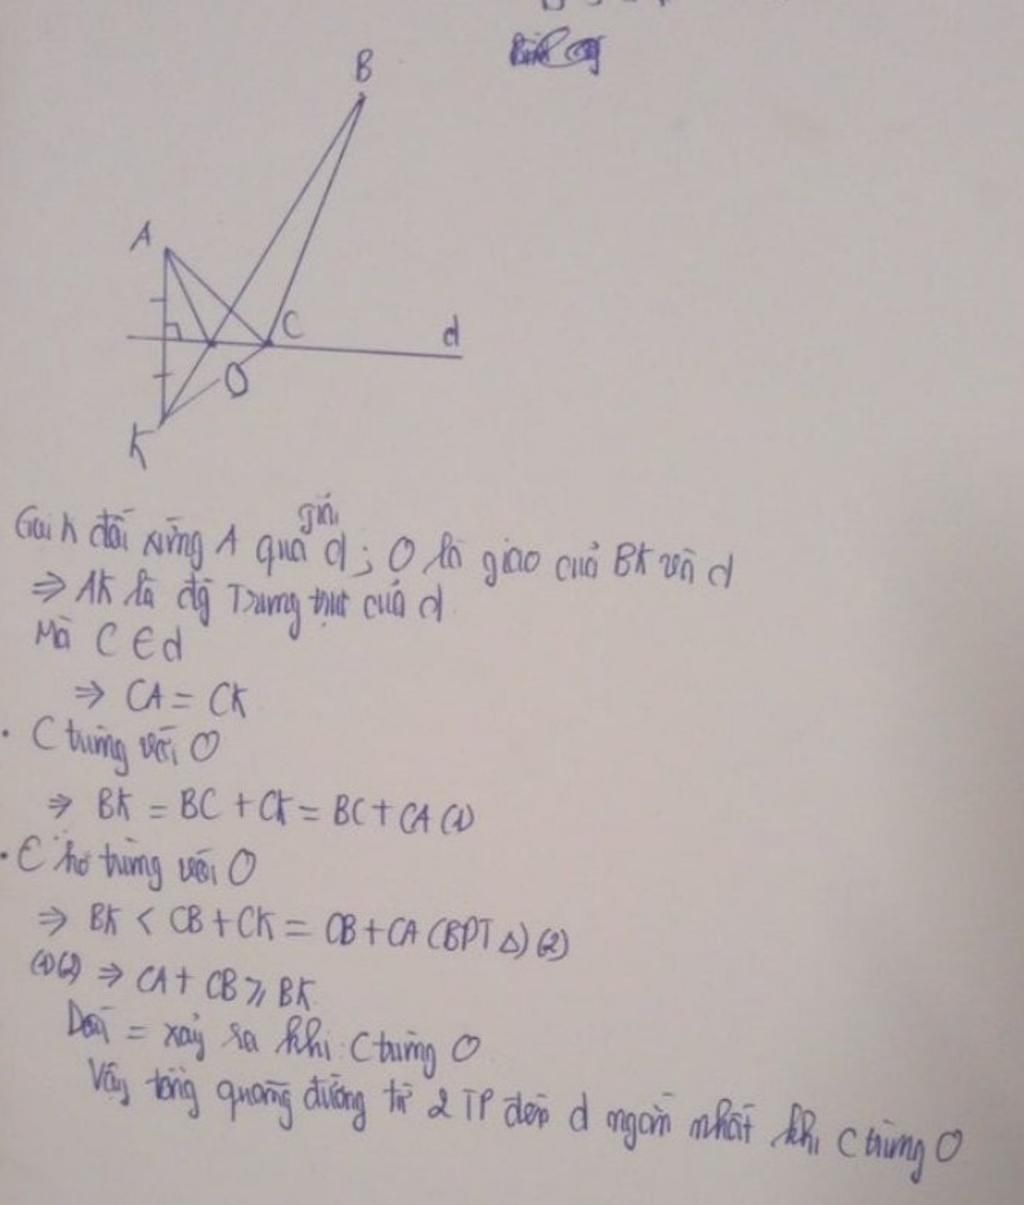 B
A
C
d
O
K
Gọi K đối xứng A qua d; O là giao của BK và d
⇒ AK là đg Trung trực của d
Mà C ∈ d
⇒ CA = CK
· C trùng với O
⇒ BK = BC + CK = BC + CA (1)
· C ko trùng với O
⇒ BK < CB + CK = CB + CA (BĐT Δ) (2)
(1)(2) ⇒ CA + CB ⩾ BK
Dấu = xảy ra khi C trùng O
Vậy tổng quãng đường từ 2 TP đến d ngắn nhất khi C trùng O